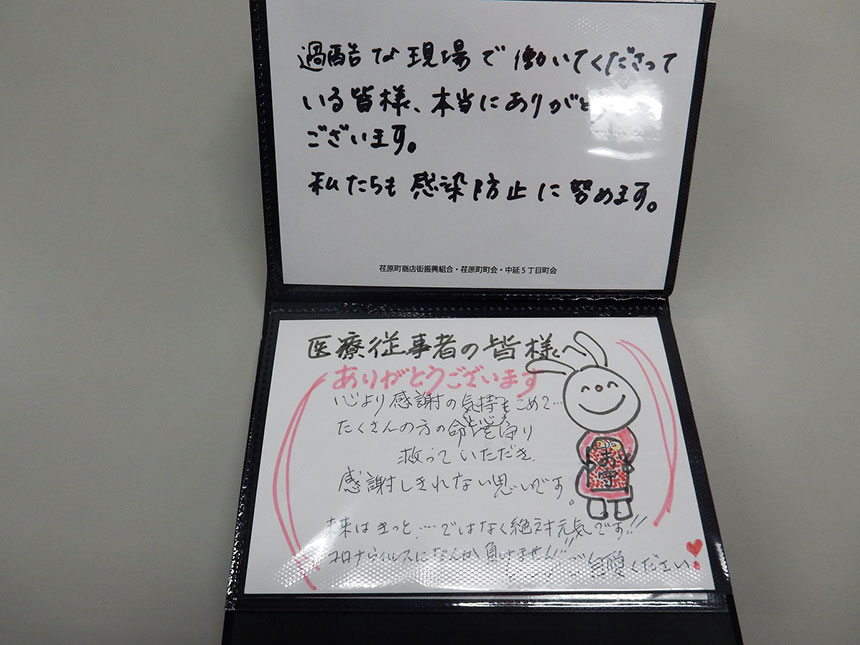 過酷な現場で働いてくださって
いる皆様、本当にありがとう
ございます。
私たちも感染防止に努めます。
荏原町商店街振興組合・荏原町町会・中延5丁目町会
医療従事者の皆様へ
ありがとうございます
心より感謝の気持をこめて…
たくさんの方の命を守り
救っていただき
感謝しきれない思いです。
お守
未来はきっと…ではなく絶対元気です!!
コロナウイルスになんか負けません!!
ご自愛ください